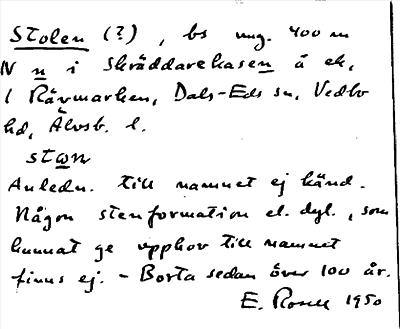 Stolen (?), bs ung. 400 m
N n i Skräddarekasen å ek,
1 Rävmarken, Dals-Eds sn, Vedbo
hd, Älvsb. l.
stωn
Anledn. till namnet ej känd.
Någon stenformation el. dyl., som
kunnat ge upphov till namnet
finns ej. - Borta sedan över 100 år.
E. Rosell 1950